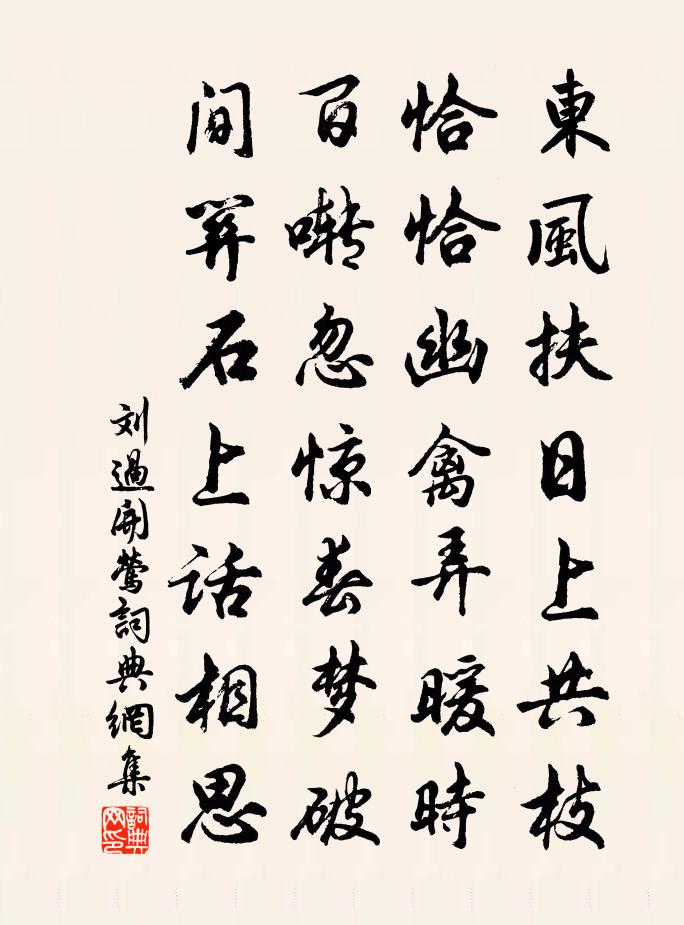 東風扶日上共枝
恰恰幽禽弄暖時
百啭忽惊春梦破
间关石上话相思
刘過闻鶯詞典網集
詞典
网印